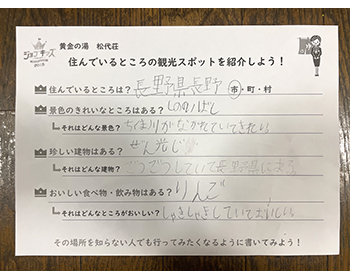 ジョブキッズ
黄金の湯 松代荘
住んでいるところの観光スポットを紹介しよう！
住んでいるところは？ 長野県長野 市・町・村
景色のきれいなところはある？ しののいばし
それはどんな景色？ ちくま川がながれていてきれい
珍しい建物はある？ ぜん光じ
それはどんな建物？ していて長野県にある
おいしい食べ物・飲み物はある？ りんご
それはどんなところがおいしい？ しゃきしゃきしていておいしい
その場所を知らない人でも行ってみたくなるように書いてみよう！